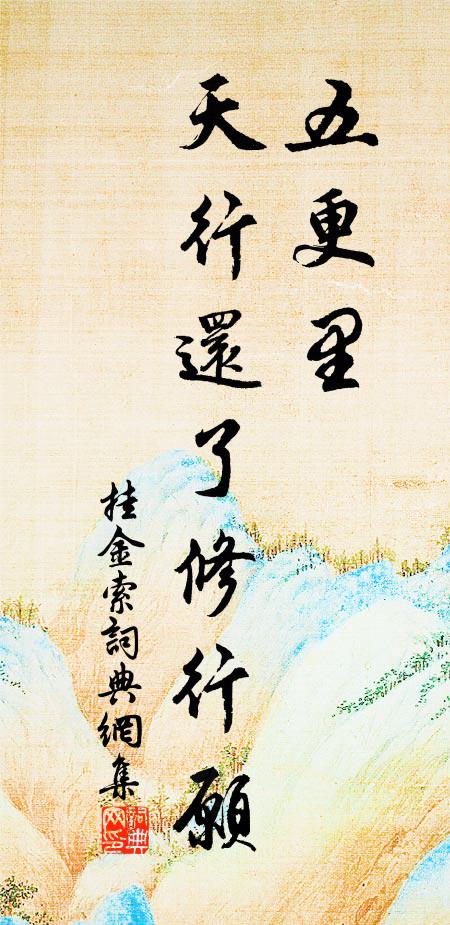 五更里
天行還了修行願
挂金索詞典網集
詞典网印